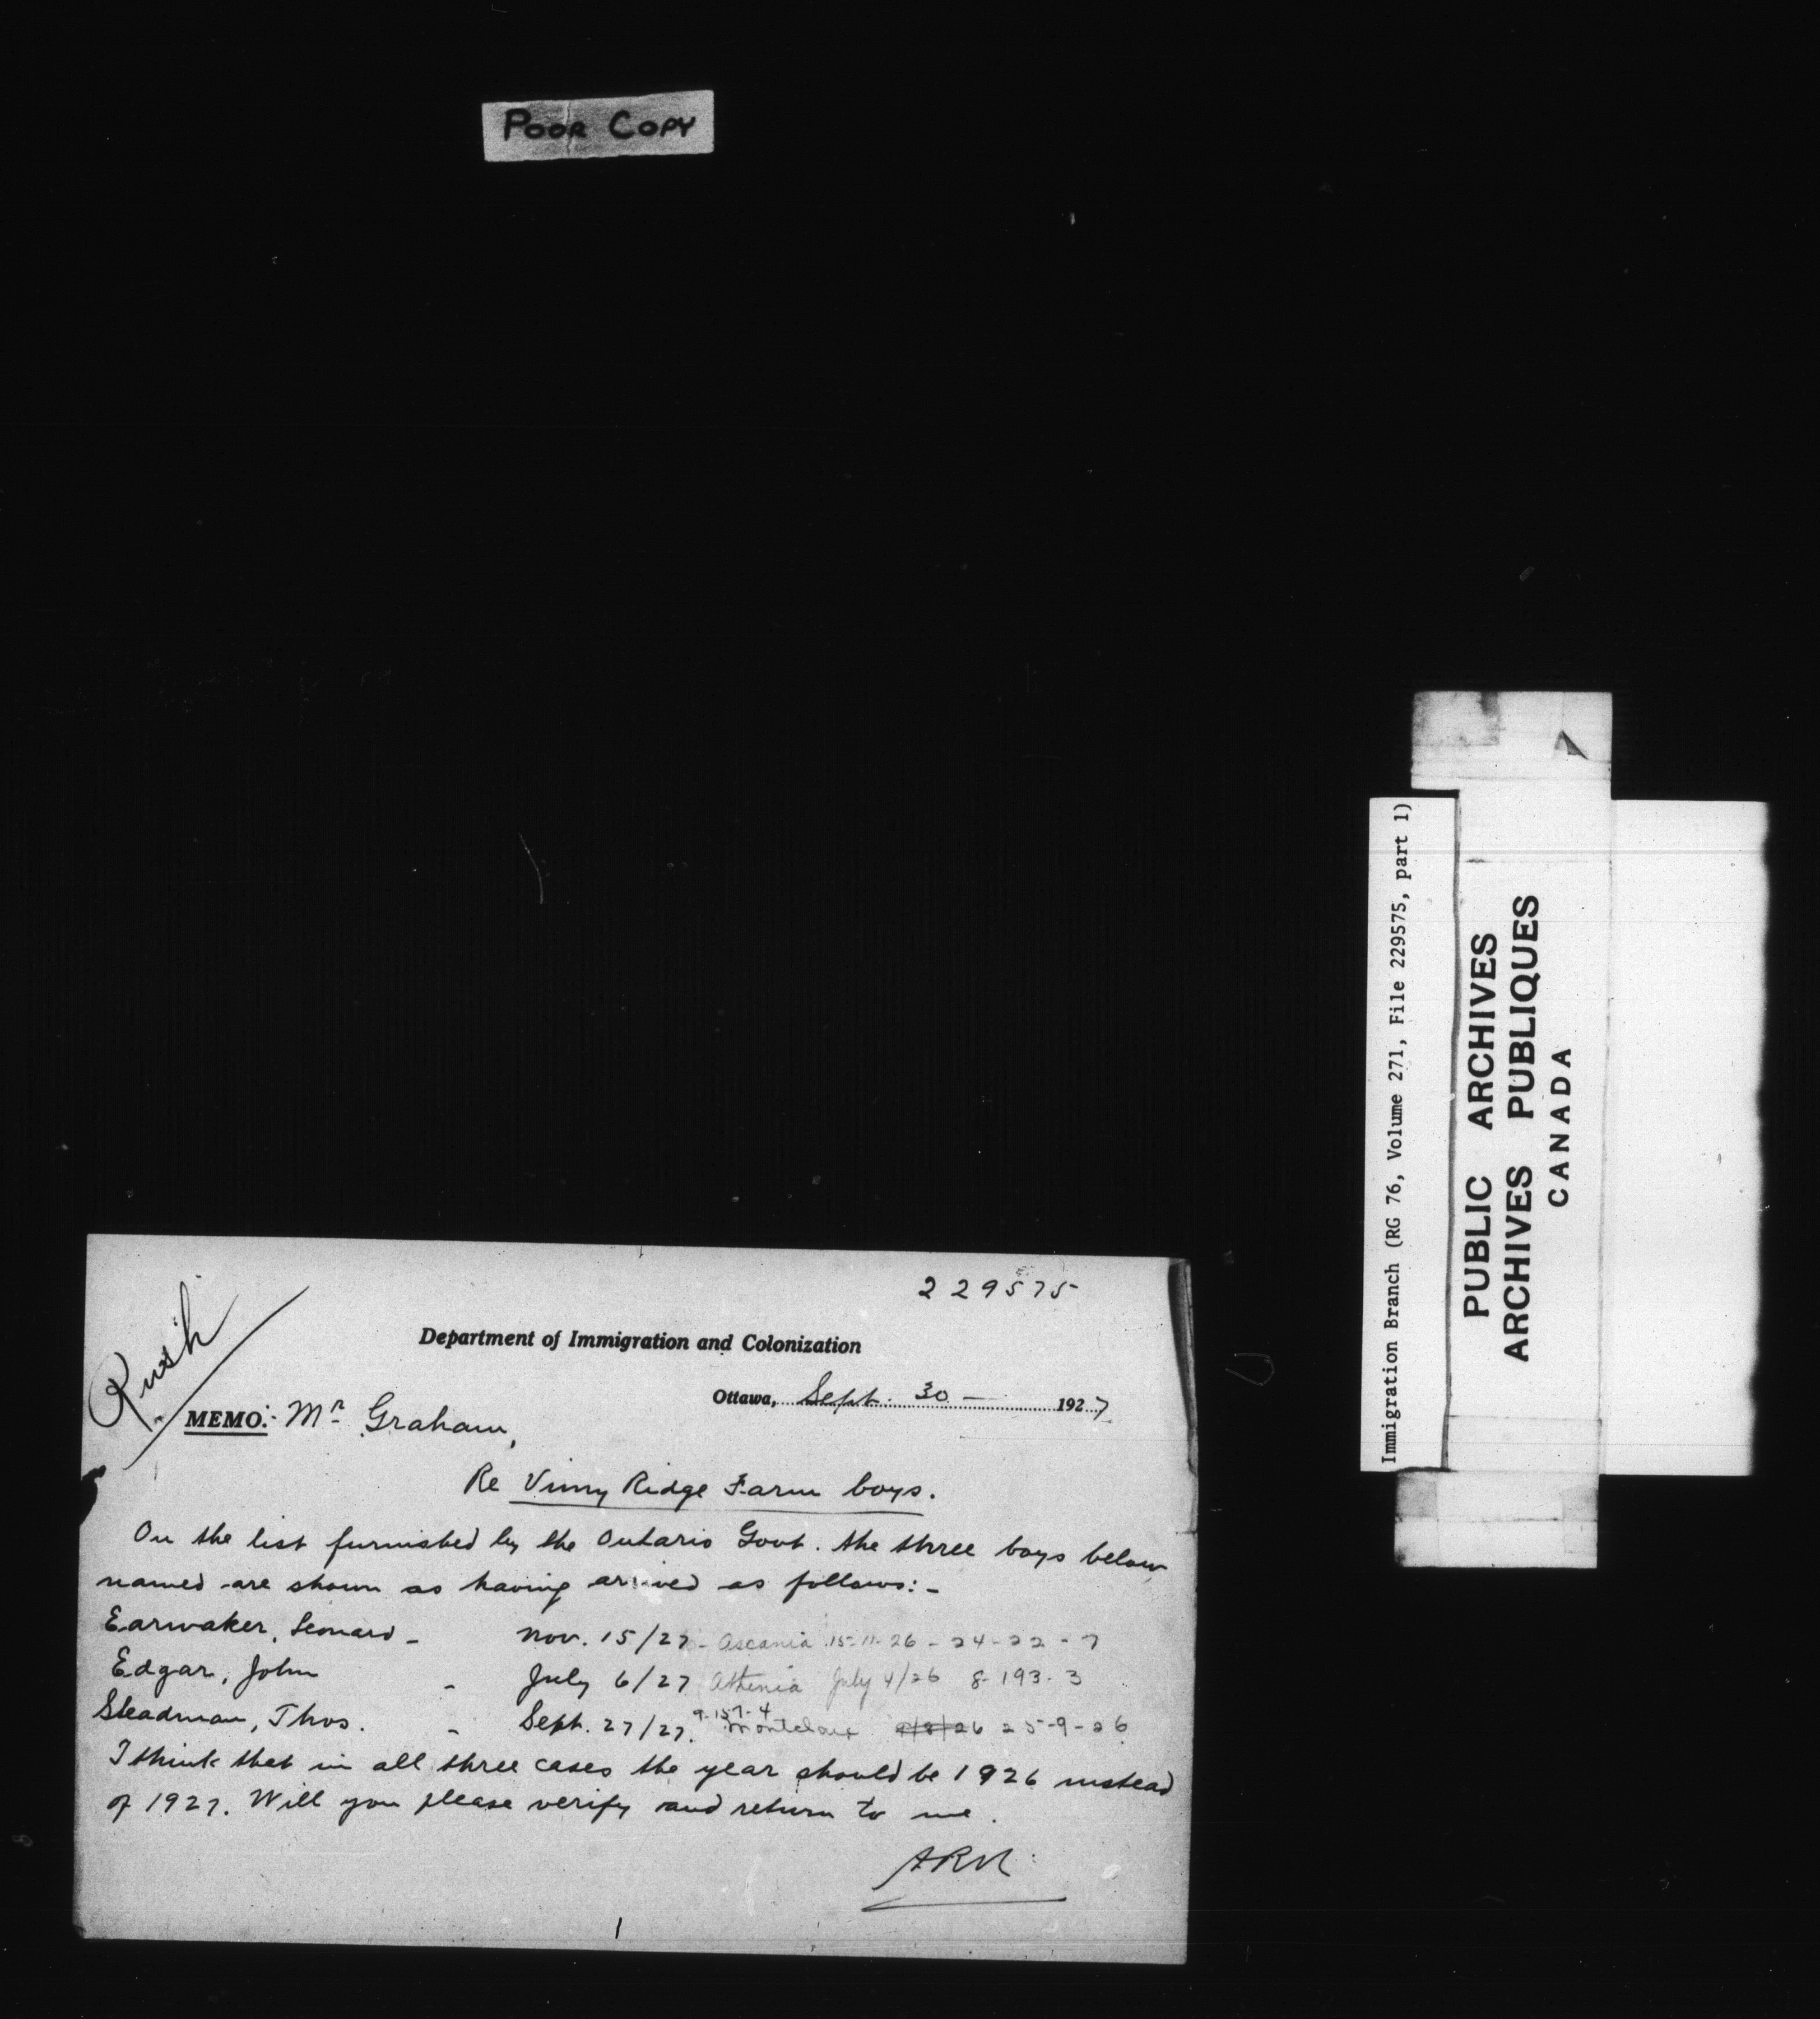 POOR COPY
229575
Rush
Department of Immigration and Colonization
Ottawa, Sept. 30 — 1927
MEMO:- Mr Graham,
Re Vimy Ridge Farm boys.
On the list furnished by the Ontario Govt. the three boys below
named are shown as having arrived as follows:-
Earwaker, Leonard - Nov. 15/27 - Ascania 15-11-26 - 24-22-7
Edgar, John - July 6/27 Athenia July 4/26 8-193-3
9-157-4
Steadman, Thos. - Sept. 27/27. Montclare 25-9-26
I think that in all three cases the year should be 1926 instead
of 1927. Will you please verify and return to me.
Immigration Branch (RG 76, Volume 271, File 229575, part 1)
PUBLIC ARCHIVES
ARCHIVES PUBLIQUES
CANADA